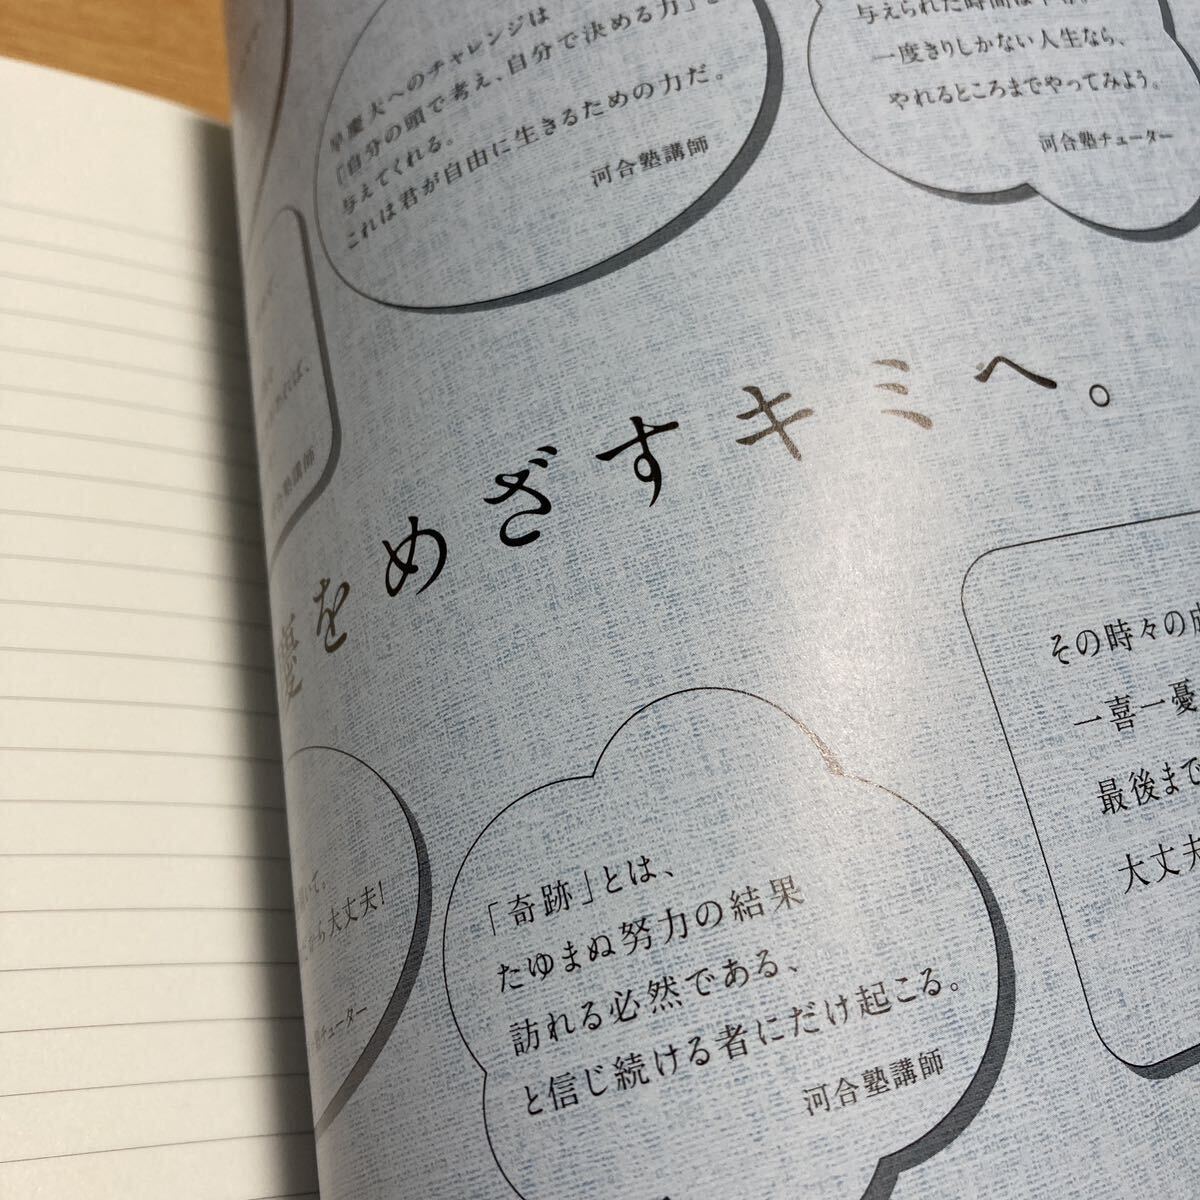 早慶大へのチャレンジは
『自分の頭で考え、自分で決める力』を
与えてくれる。
これは君が自由に生きるための力だ。
河合塾講師
与えられた時間は
一度きりしかない人生なら、
やれるところまでやってみよう。
河合塾チューター
塾講師
慶をめざすキミへ。
その時々の成
一喜一憂
最後まで
大丈夫
大丈夫!
チューター
「奇跡」とは、
たゆまぬ努力の結果
訪れる必然である、
と信じ続ける者にだけ起こる。
河合塾講師